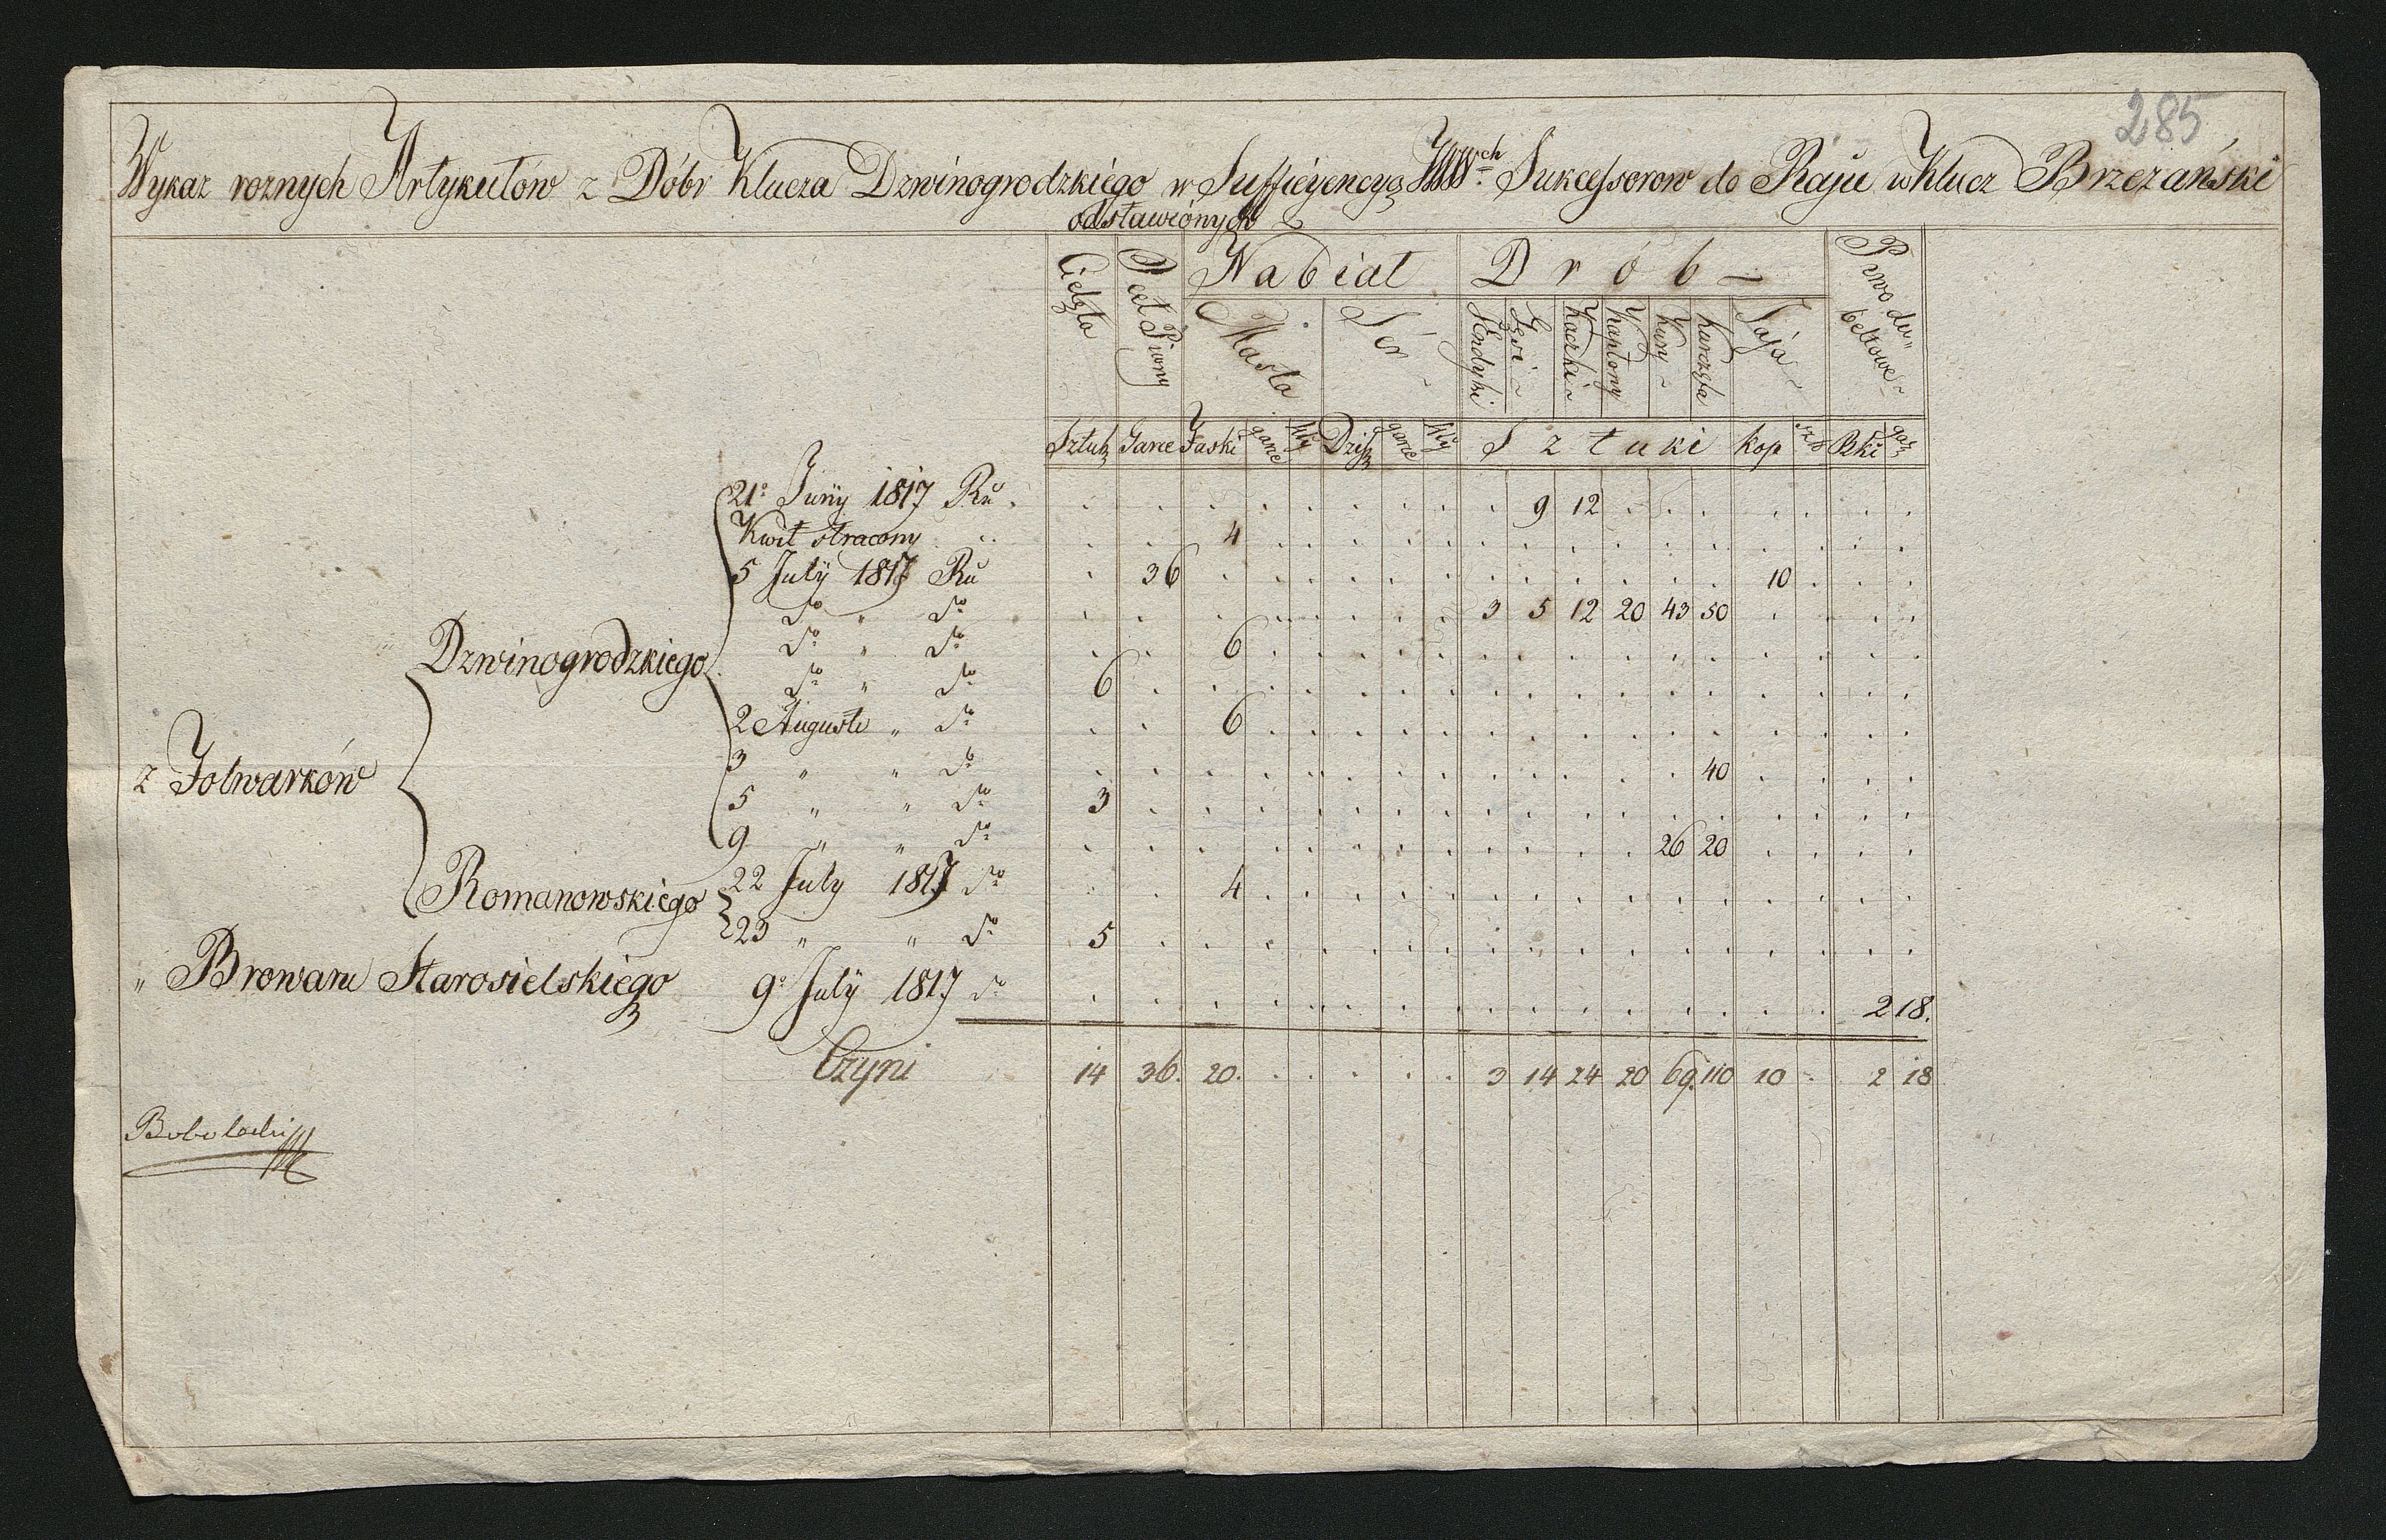 285
Wykaz roznych Artykułów z Dóbr Klucza Dzwinogrodzkiego w Sufficyencyą JWWch Sukcessorow do Raju w Klucz Brzezański
odstawionych
Cielęta Ocet Piwny Nabiał Drób – Piwo du„beltowe
Masła Ser Jendyki Gęsi Kaczki Kapłony Kury Kurczęta Jaja
Sztuk Garce Faski garce Dziż garce Sztuki kop Bki gar
21° Junÿ 1817 Ru . . . . . . . . . 9 12 . . . . . . .
Kwit stracony . . 4 . . . . . . . . . . . . . . .
5 Julÿ 1817 Ru . 36 . . . . . . . . . . . . 10 . . .
do „ do . . . . . . . . 3 5 12 20 43 50 . . . .
do „ do . . 6 . . . . . . . . . . . . . . .
Dzwinogrodzkiego
do „ do 6 . . . . . . . . . . . . . . . . .
2 Auguste „ do . . 6 . . . . . . . . . . . . . . .
z Folwarków
3 „ „ do . . . . . . . . . . . . . 40 . . . .
5 „ „ do 3 . . . . . . . . . . . . . . . . .
9 „ „ do . . . . . . . . . . . . 26 20 . . . .
Romanowskiego
22 July 1817 do . . 4 . . . . . . . . . . . . . . .
23 „ „ do 5 . . . . . . . . . . . . . . . . .
„ Browaru Starosielskiego 9° Julÿ 1817 do . . . . . . . . . . . . . . . . 2 18.
Czyni 14 36. 20. . . . . . 3 14 24 20 69. 110 10 . 2 18